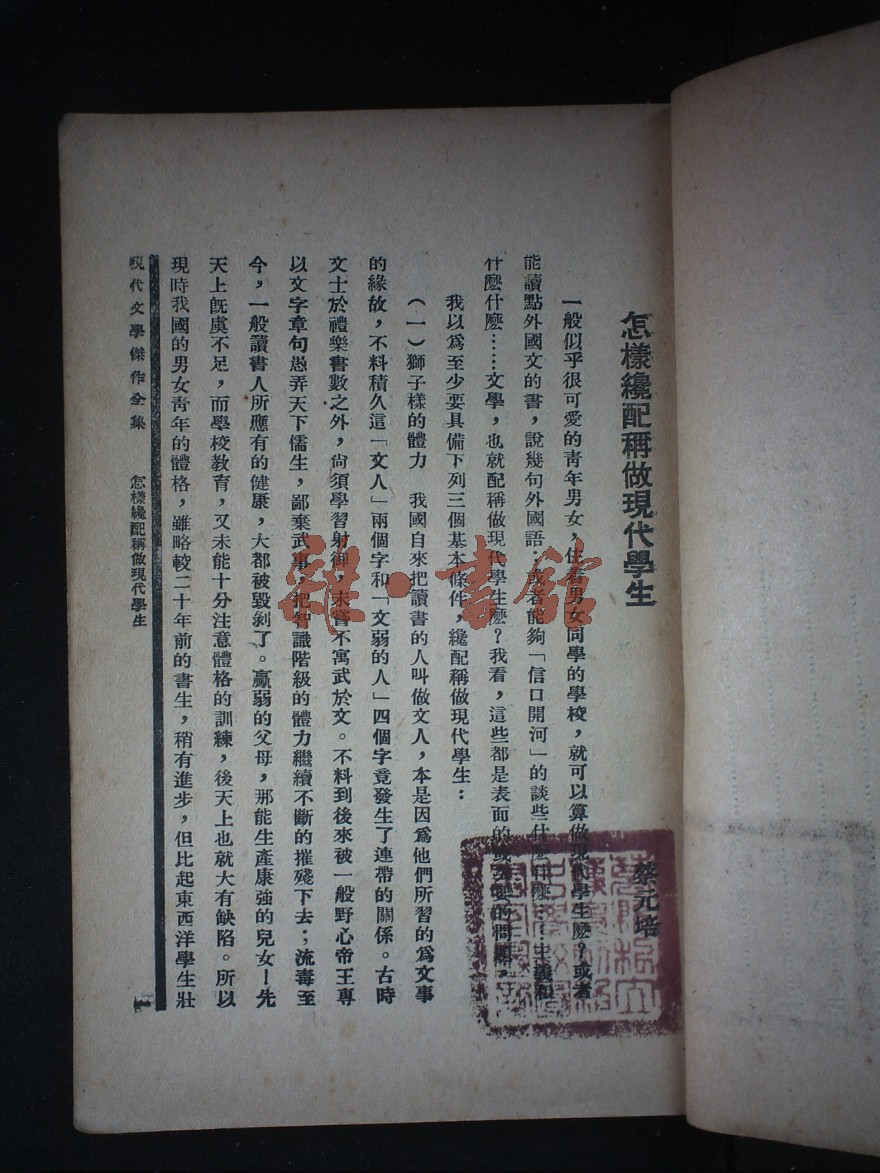 怎樣纔配稱做現代學生
蔡元培
一般似乎很可愛的青年男女，住着男女同學的學校，就可以算做現代學生麽？或者
能讀點外國文的書，說幾句外國語；或者能夠「信口開河」的談些什麽什麽主義和
什麽什麽……文學，也就配稱做現代學生麽？我看，這些都是表面的或次要的問題，
我以爲至少要具備下列三個基本條件，纔配稱做現代學生：
（一）獅子樣的體力　我國自來把讀書的人叫做文人，本是因爲他們所習的爲文事
的緣故，不料積久這「文人」兩個字和「文弱的人」四個字竟發生了連帶的關係。古時
文士於禮樂書數之外，尙須學習射御，未嘗不寓武於文。不料到後來被一般野心帝王專
以文字章句愚弄天下儒生，鄙棄武事，把智識階級的體力繼續不斷的摧殘下去；流毒至
今，一般讀書人所應有的健康，大都被毀剝了。羸弱的父母，那能生產康強的兒女！先
天上旣虞不足，而學校教育，又未能十分注意體格的訓練，後天上也就大有缺陷。所以
現時我國的男女青年的體格，雖略較二十年前的書生，稍有進步，但比起東西洋學生壯
現代文學傑作全集　怎樣纔配稱做現代學生
一
雜·書館